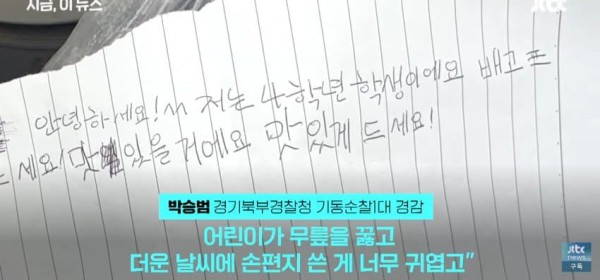 지금, 이 뉴스
jtbc
안녕하세요! 저는 4학년 학생이에요 배고프
드세요! 맛있을 거에요 맛있게 드세요!
박승범 경기북부경찰청 기동순찰1대 경감
어린이가 무릎을 꿇고
더운 날씨에 손편지 쓴 게 너무 귀엽고”
jtbc
news
구독